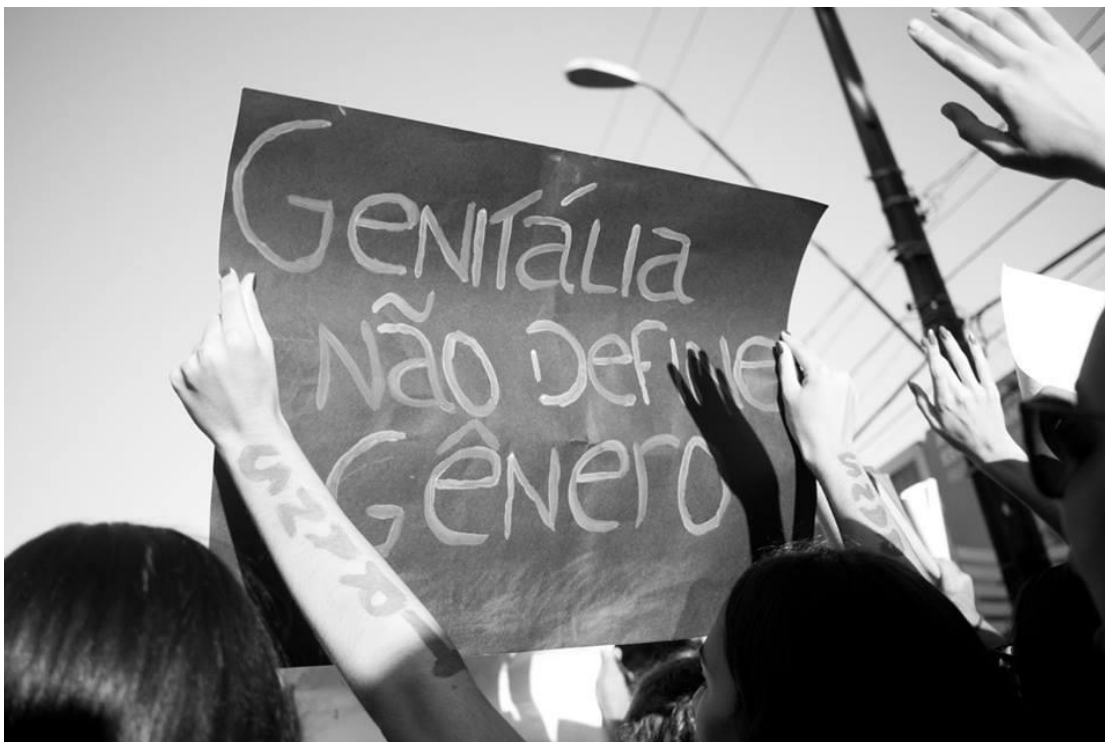 GENITÁLIA
NÃO DEFINE
GÊNERO